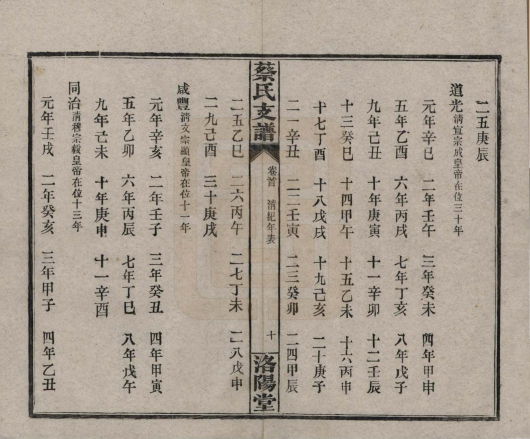 二五庚辰
道光清宣宗成皇帝在位三十年
元年辛巳 二年壬午 三年癸未 四年甲申
五年乙酉 六年丙戌 七年丁亥 八年戊子
九年己丑 十年庚寅 十一辛卯 十二壬辰
十三癸巳 十四甲午 十五乙未 十六丙申
十七丁酉 十八戊戌 十九己亥 二十庚子
二一辛丑 二二壬寅 二三癸卯 二四甲辰
蔡氏支譜 卷首 清紀年表 十 洛陽堂
二五乙巳 二六丙午 二七丁未 二八戊申
二九己酉 三十庚戌
咸豐清文宗顯皇帝在位十一年
元年辛亥 二年壬子 三年癸丑 四年甲寅
五年乙卯 六年丙辰 七年丁巳 八年戊午
九年己未 十年庚申 十一辛酉
同治清穆宗毅皇帝在位十三年
元年壬戌 二年癸亥 三年甲子 四年乙丑